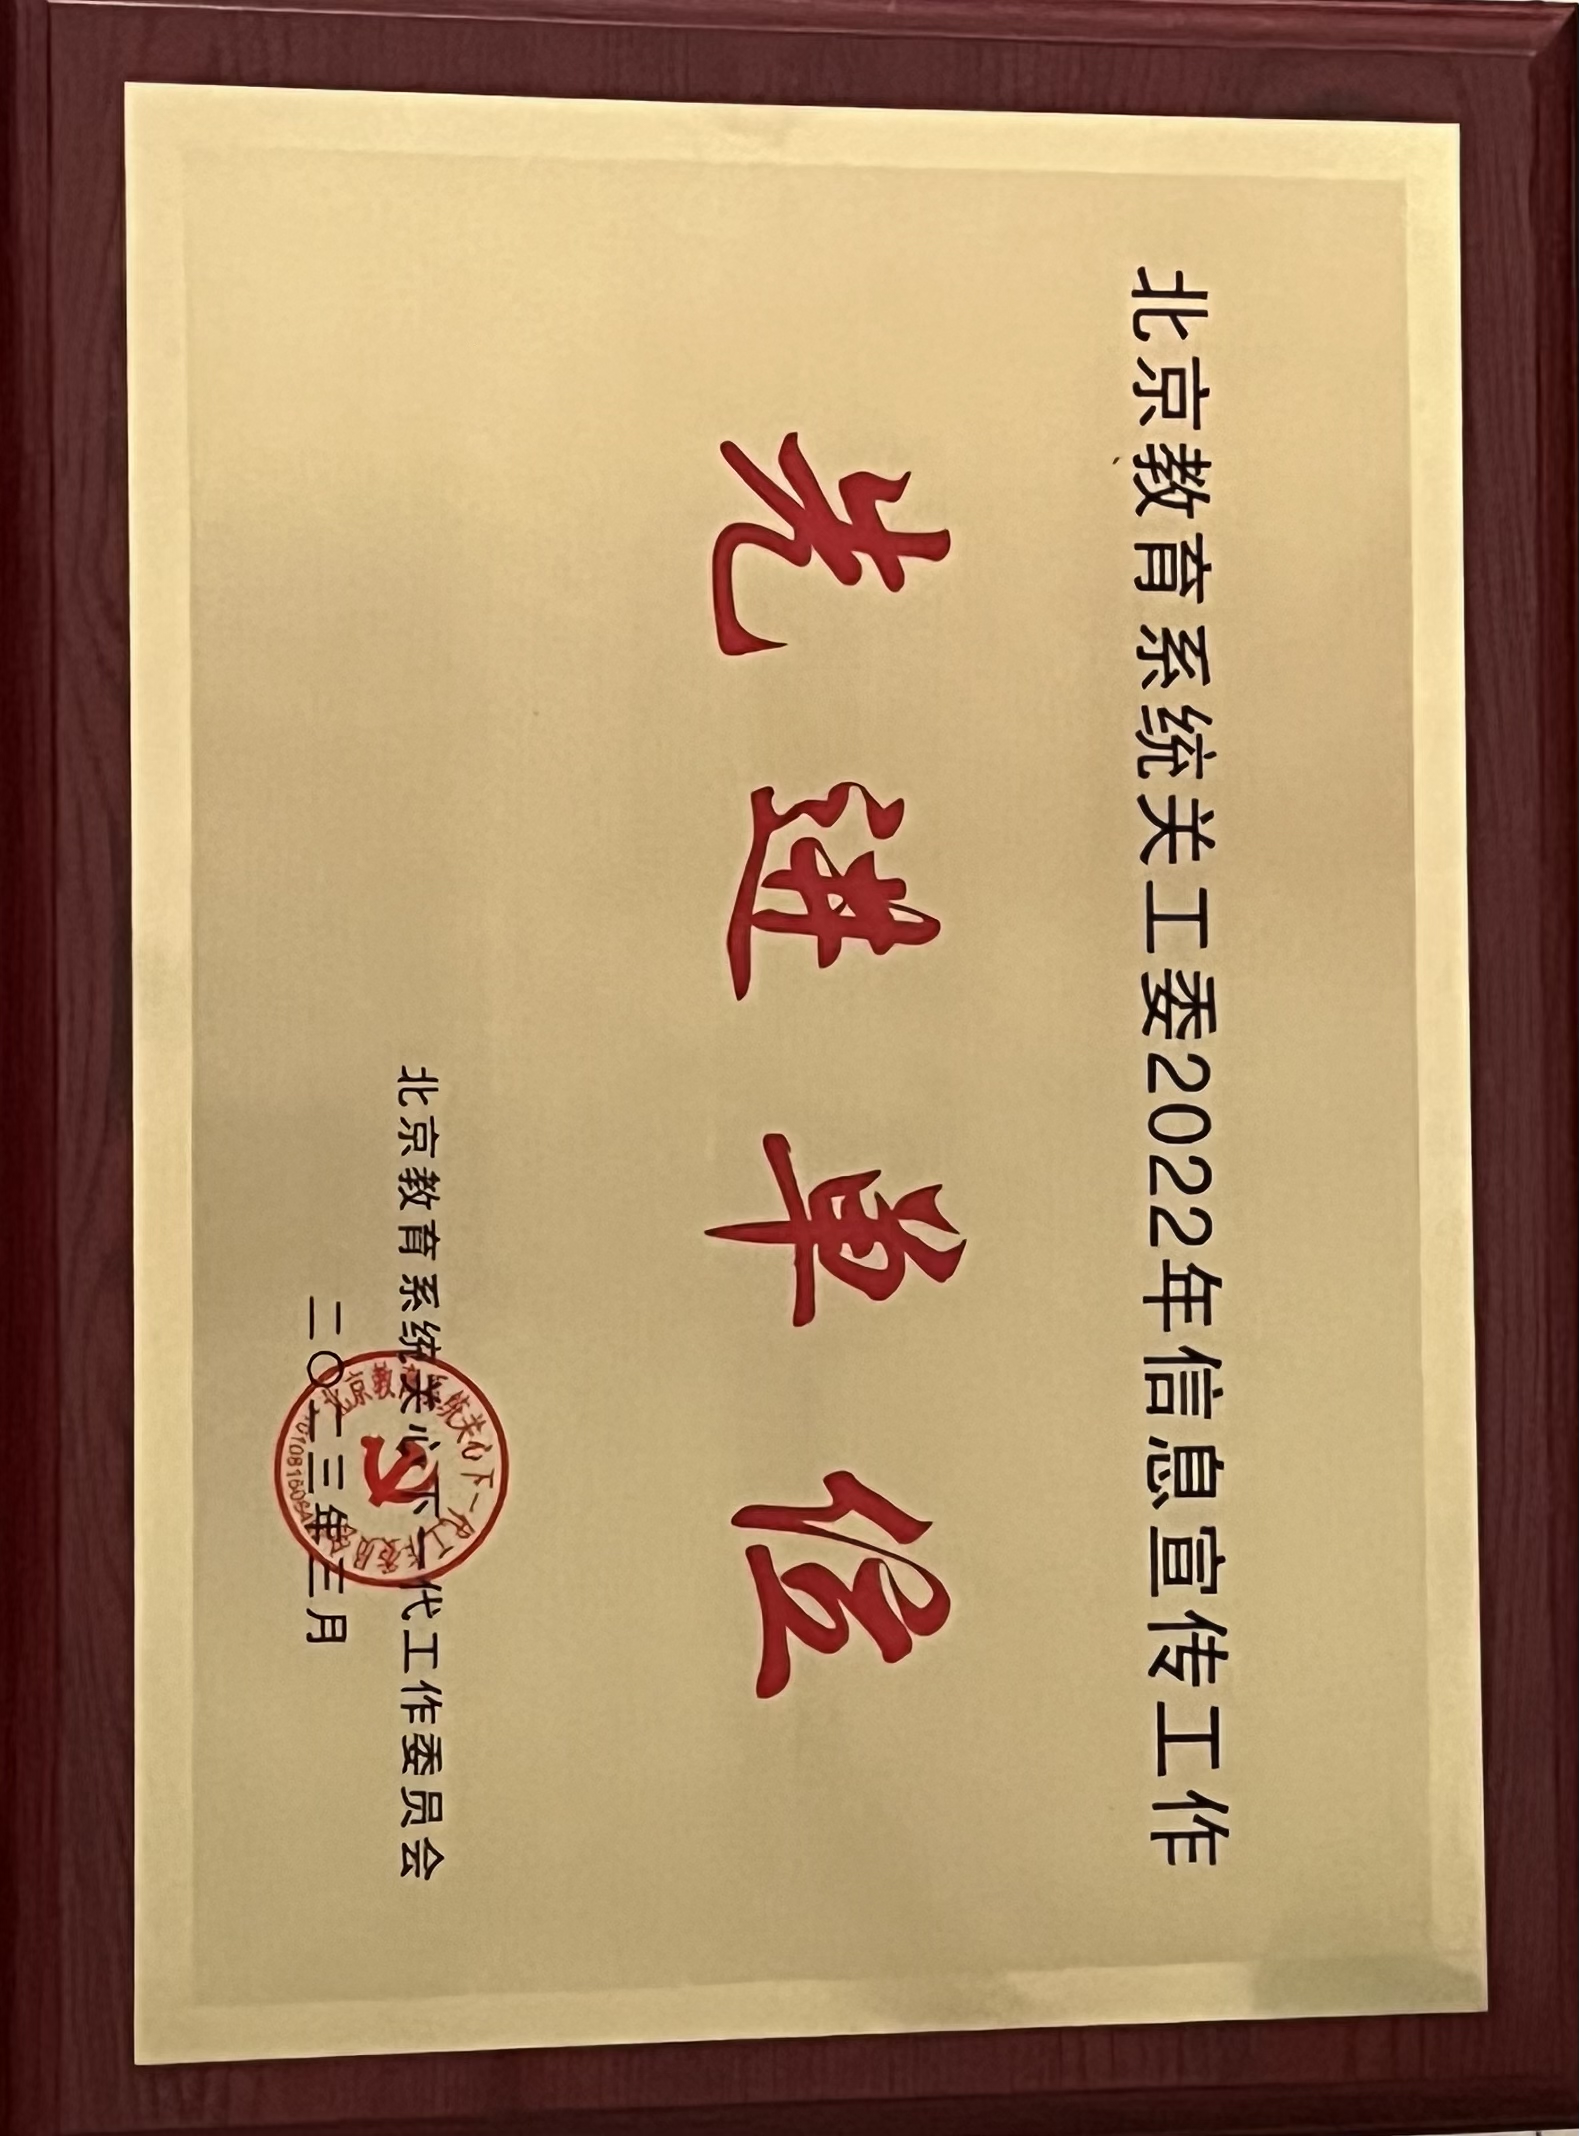 北京教育系统关工委2022年信息宣传工作
先进单位
北京教育系统关心下一代工作委员会
二〇二三年三月
北京教育系统关心下一代工作委员会